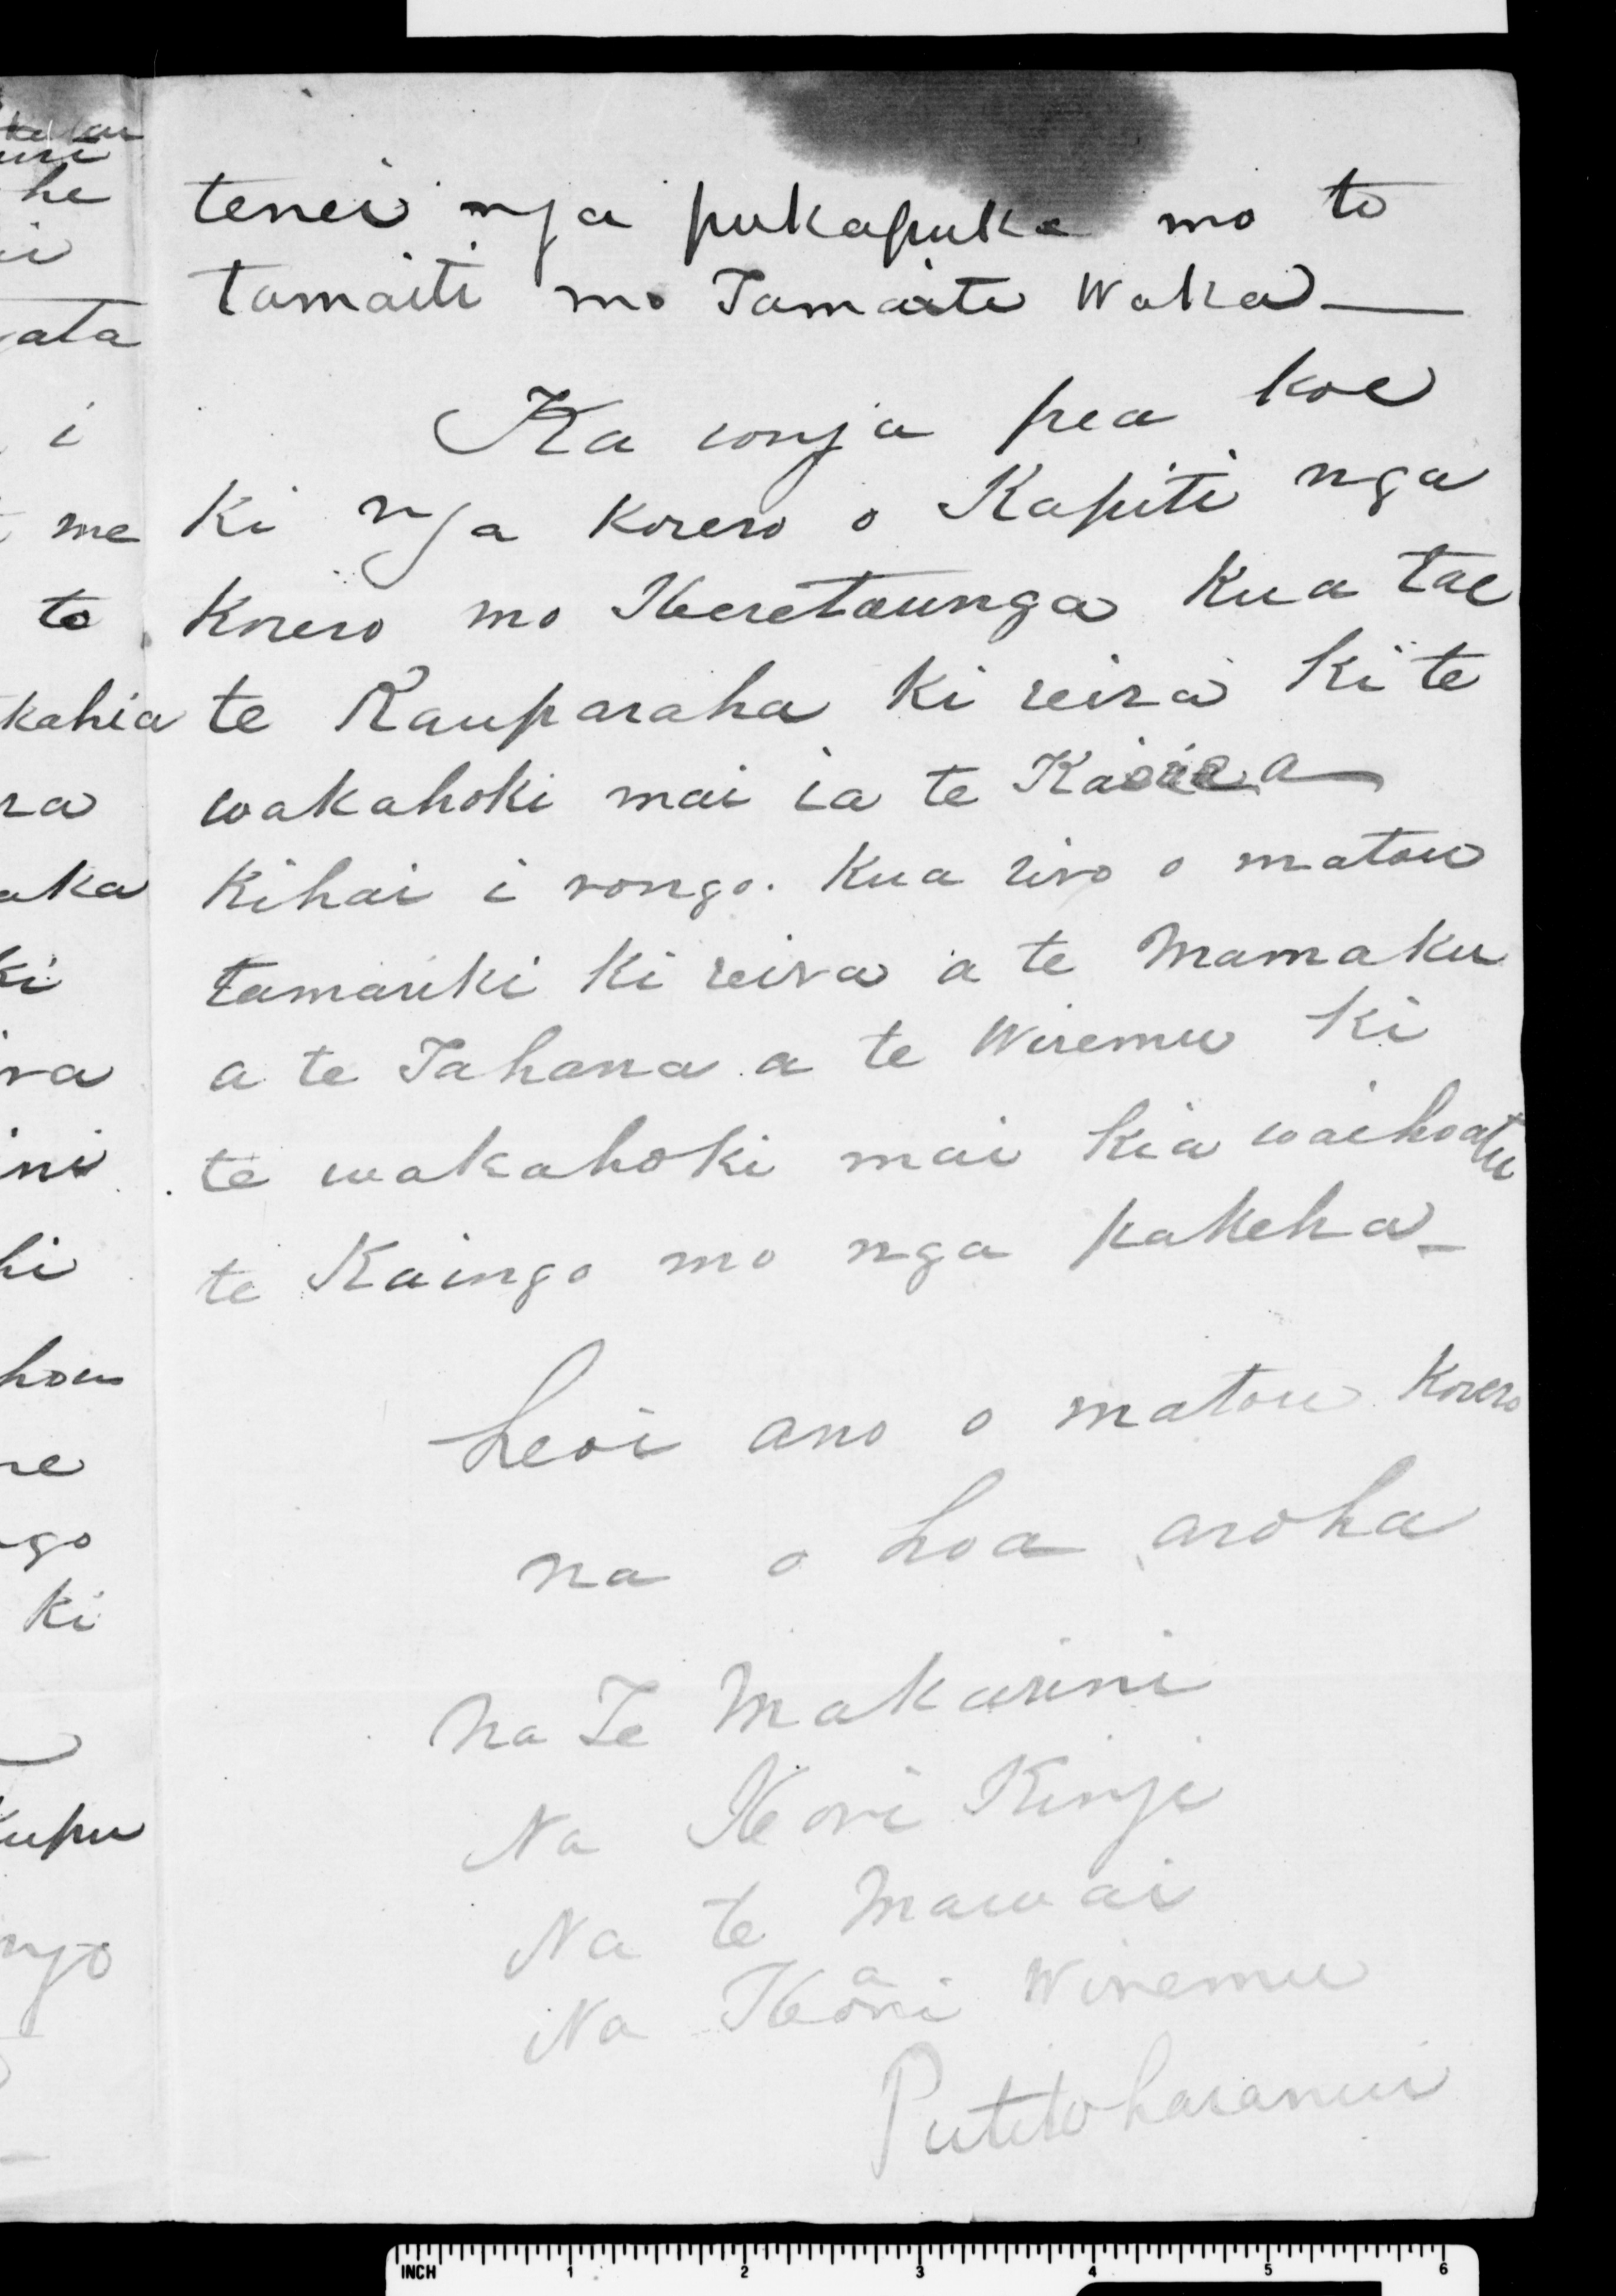 tenei nga pukapuka mo to
tamaiti mo Tamaiti Waka —
Ka ronga pea koe
ki nga korero o Kapiti nga
Korero mo Heretaunga Kua tae
te Rauparaha ki reira ki te
wakahoki mai ia te
kihai i rongo. Kua riro o matou
tamariki ki reira a te Mamaku
a te Tahana a te Wiremu ki
te wakahoki mai kia waihoatu
te Kainga mo nga pakeha —
heoi ano o matou Korero
na o hoa aroha
na Te Makarini
Na Hori Kingi
Na te Mawai
Na Hoani Wiremu
Putitoharanui
he
ata
i
me
to
kahia
ra
aka
ki
ra
ni
hi
hou
re
go
ki
kupu
ngo